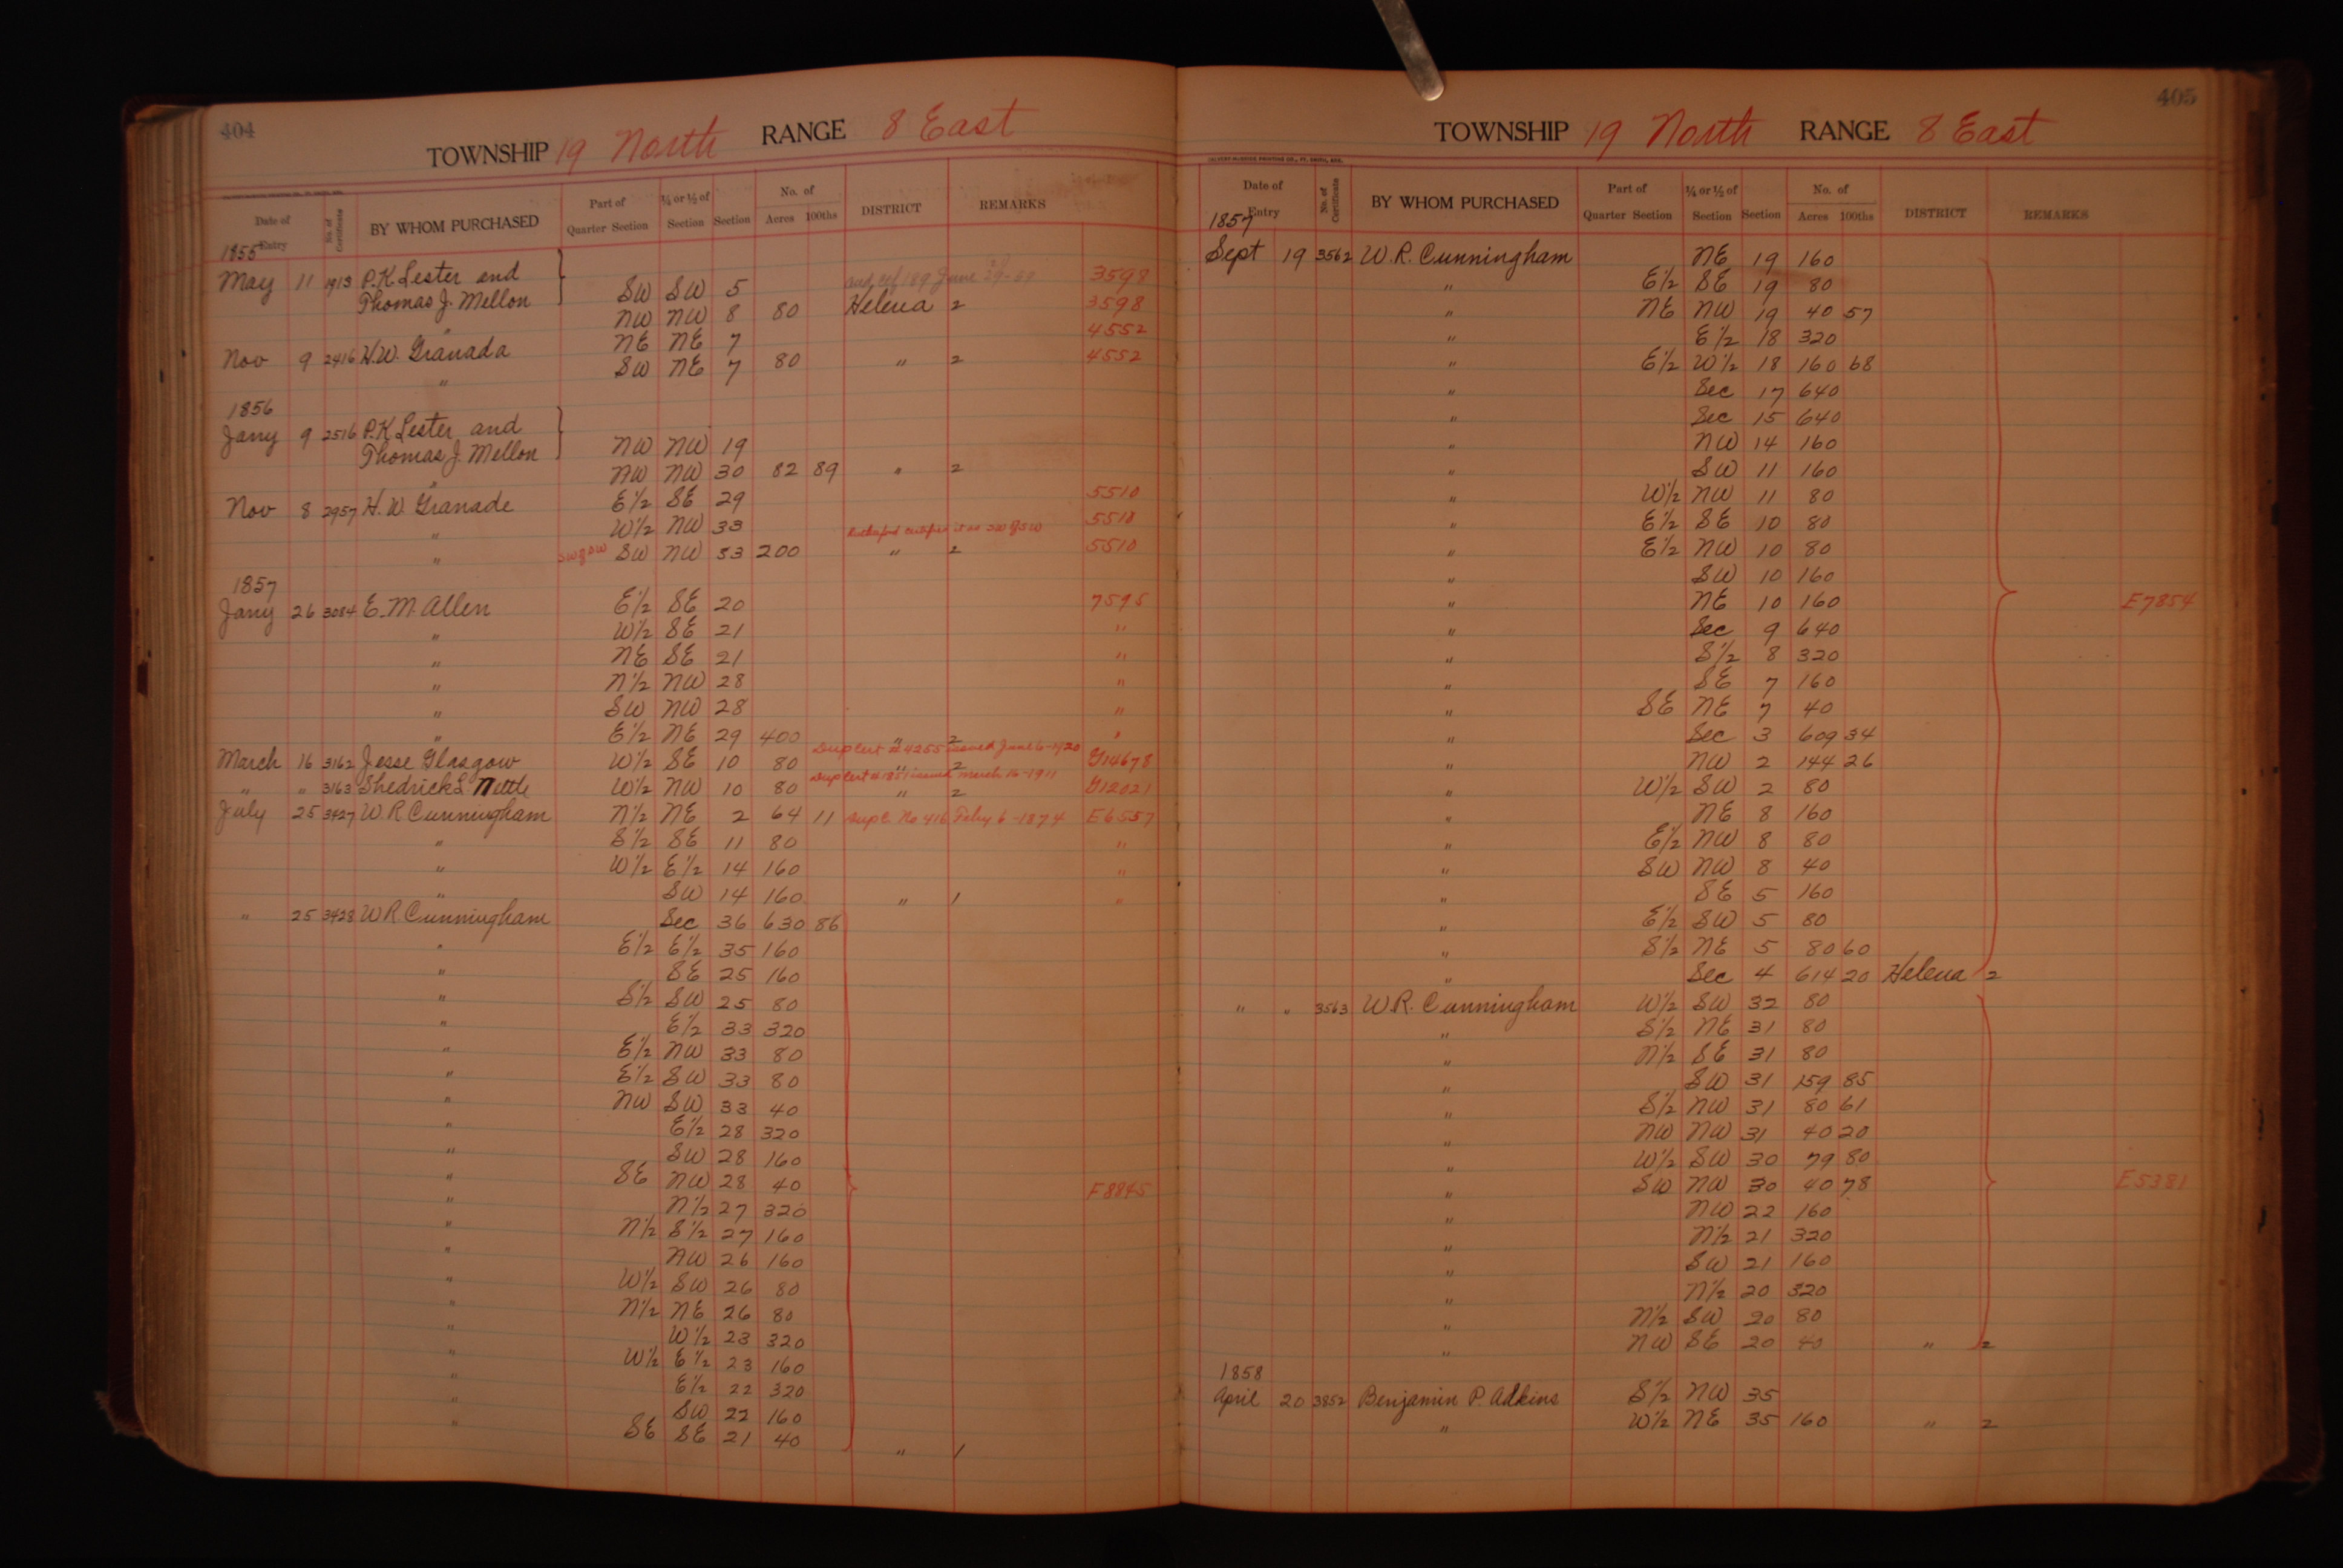 404
TOWNSHIP 19 North RANGE 8 East
Date of Entry No. of Certificate BY WHOM PURCHASED Part of Quarter Section ¼ or ½ of Section Section No. of Acres 100ths DISTRICT REMARKS
1855
May 11 1913 P.K Lester and
Thomas J. Mellon SW SW 5 3598
" NW NW 8 80 Helena 2 3598
Nov 9 2416 H.W. Granada NE NE 7 4552
" SW NE 7 80 " 2 4552
1856
Jany 9 2516 P.K Lester and
Thomas J. Mellon NW NW 19
" NW NW 30 82 89 " 2
Nov 8 2957 H. W. Granade E½ SE 29 5510
" W½ NW 33 5510
" SW NW 33 200 " 2 5510
1857
Jany 26 3084 E. M Allen E½ SE 20 7595
" W½ SE 21 "
" NE SE 21 "
" N½ NW 28 "
" SW NW 28 "
" E½ NE 29 400 " 2 "
Dup Cert # 4255 issued June 6-1920
March 16 3162 Jesse Glasgow W½ SE 10 80 " 2 G14678
Dup Cert # 1851 issued March 16-1911
" " 3163 Shedrick L. Nettle W½ NW 10 80 " 2 G12021
July 25 3427 W. R Cunningham N½ NE 2 64 11 Dup C. No 416 Feby 6-1874 E6557
" S½ SE 11 80 "
" W½ E½ 14 160 "
" SW 14 160 " 1 "
" 25 3428 W R Cunningham Sec 36 630 86
" E½ E½ 35 160
" SE 25 160
" S½ SW 25 80
" E½ 33 320
" E½ NW 33 80
" E½ SW 33 80
" NW SW 33 40
" E½ 28 320
" SW 28 160
" SE NW 28 40 F8845
" N½ 27 320
" N½ S½ 27 160
" NW 26 160
" W½ SW 26 80
" N½ NE 26 80
" W½ 23 320
" W½ E½ 23 160
" E½ 22 320
" SW 22 160
" SE SE 21 40 " 1
405
TOWNSHIP 19 North RANGE 8 East
Date of Entry No. of Certificate BY WHOM PURCHASED Part of Quarter Section ¼ or ½ of Section Section No. of Acres 100ths DISTRICT REMARKS
1857
Sept 19 3562 W. R. Cunningham NE 19 160
" E½ SE 19 80
" NE NW 19 40 57
" E½ 18 320
" E½ W½ 18 160 68
" Sec 17 640
" Sec 15 640
" NW 14 160
" SW 11 160
" W½ NW 11 80
" E½ SE 10 80
" E½ NW 10 80
" SW 10 160
" NE 10 160 E7854
" Sec 9 640
" S½ 8 320
" SE 7 160
" SE NE 7 40
" Sec 3 609 34
" NW 2 144 26
" W½ SW 2 80
" NE 8 160
" E½ NW 8 80
" SW NW 8 40
" SE 5 160
" E½ SW 5 80
" S½ NE 5 80 60
" Sec 4 614 20 Helena 2
" " 3563 W. R. Cunningham W½ SW 32 80
" S½ NE 31 80
" N½ SE 31 80
" SW 31 159 85
" S½ NW 31 80 61
" NW NW 31 40 20
" W½ SW 30 79 80
" SW NW 30 40 78 E5381
" NW 22 160
" N½ 21 320
" SW 21 160
" N½ 20 320
" N½ SW 20 80
" NW SE 20 40 " 2
1858
April 20 3852 Benjamin P. Adkins S½ NW 35
" W½ NE 35 160 " 2